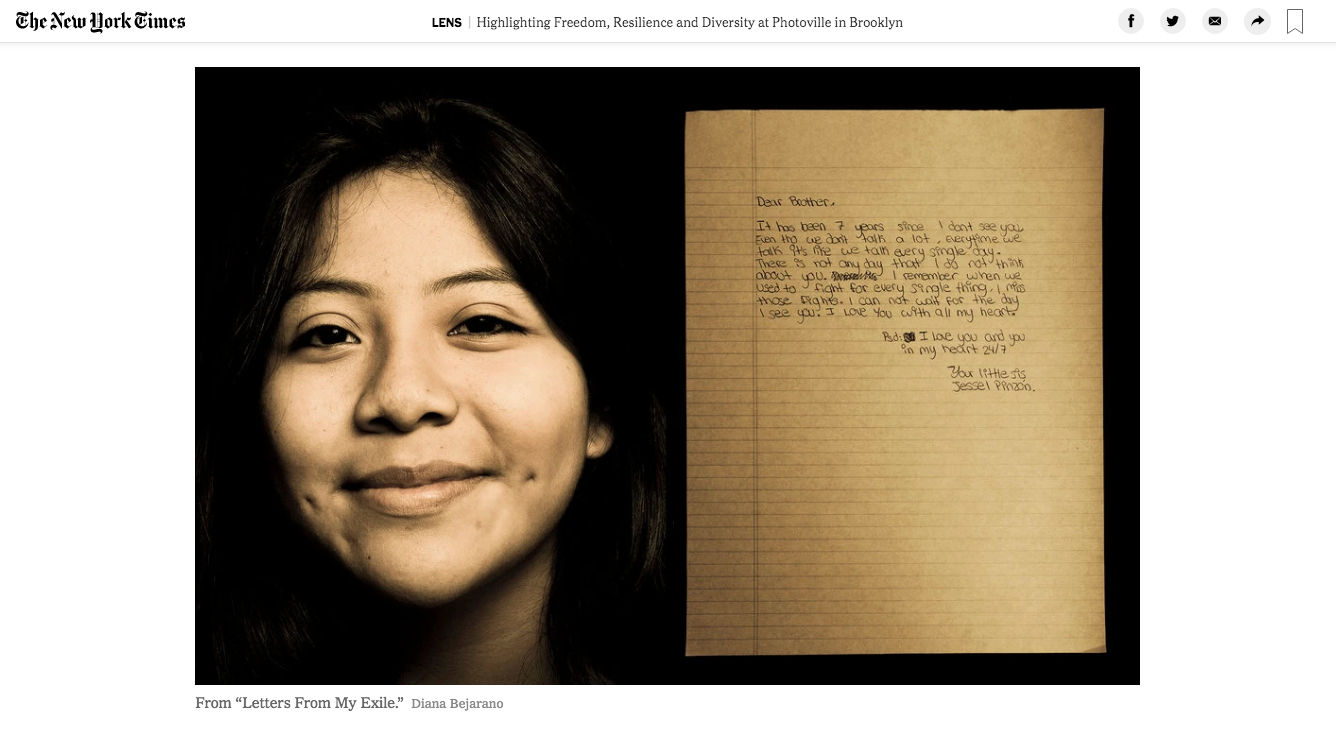 The New York Times
LENS | Highlighting Freedom, Resilience and Diversity at Photoville in Brooklyn
Dear Brother,
It has been 7 years since I dont see you.
Even tho we don't talk a lot, everytime we
talk it's like we talk every single day.
There is not any day that I do not think
about you. I remember when we
used to fight for every single thing, I miss
those fights. I can not wait for the day
I see you. I love you with all my heart.
Psd: I love you and you
in my heart 24/7
Your little sis
Jessel Pinzon.
From “Letters From My Exile.” Diana Bejarano